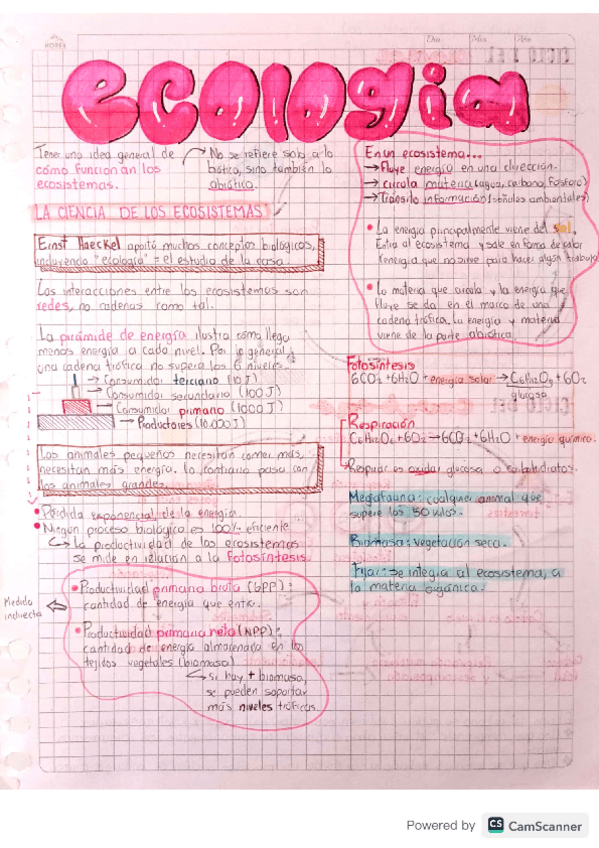 Día Mes Año
ecología
Tener una idea general de
cómo funcionan los
ecosistemas.
No se refiere solo a lo
biótico, sino también lo
abiótico.
LA CIENCIA DE LOS ECOSISTEMAS
Ernst Haeckel aportó muchos conceptos biológicos,
incluyendo "ecología" = el estudio de la casa.
Las interacciones entre los ecosistemas son
redes, no cadenas como tal.
La pirámide de energía ilustra como llega
menos energía a cada nivel. Por lo general,
una cadena trófica no supera los 6 niveles.
→ Consumidor terciario (10 J)
→ Consumidor secundario (100 J)
→ Consumidor primario (1000 J)
→ Productores (10.000 J)
Los animales pequeños necesitan comer más,
necesitan más energía. Lo contrario pasa con
los animales grandes.
• Pérdida exponencial de la energía.
• Ningún proceso biológico es 100% eficiente
↳ La productividad de los ecosistemas
se mide en relación a la fotosíntesis
Medida
indirecta
• Productividad primaria bruta (GPP):
cantidad de energía que entra.
• Productividad primaria neta (NPP):
cantidad de energía almacenada en los
tejidos vegetales (biomasa)
↳ Si hay + biomasa,
se pueden soportar
más niveles tróficos.
En un ecosistema...
→ Fluye energía en una dirección.
→ circula materia (agua, carbono, fósforo)
→ Tránsito información (señales ambientales)
• La energía principalmente viene del sol.
Entra al ecosistema y sale en forma de calor
(energía que no sirve para hacer algún trabajo
• La materia que circula y la energía que
fluye se da en el marco de una
cadena trófica. La energía y materia
viene de la parte abiótica.
Fotosíntesis
6CO2 + 6H2O + energía solar → C6H12O6 + 6O2
glucosa
Respiración
C6H12O6 + 6O2 → 6CO2 + 6H2O + energía química.
Respirar es oxidar glucosa o carbohidratos.
Megafauna: cualquier animal que
supere los 50 kilos.
Biomasa: vegetación seca.
Fijar: se integra al ecosistema, a
la materia orgánica.
Powered by CS CamScanner